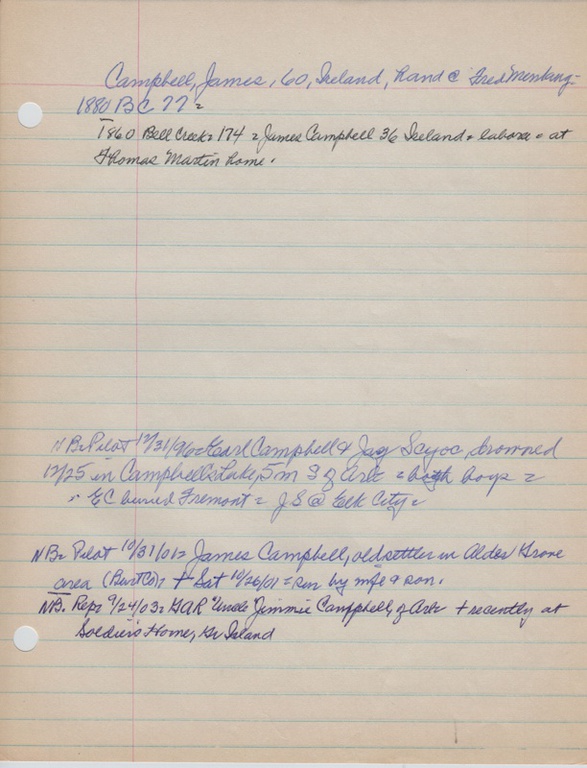 Campbell, James, 60, Ireland, hand @ Fred Menking =
1880 BC 77 =
1860 Bell Creek = 174 = James Campbell 36 Ireland = laborer = at
Thomas Martin home.
NB = Pilot 12/31/96 = Earl Campbell & Jay Scyoc, drowned
12/25 in Campbell's Lake, 5 m S of Arl = both boys =
EC buried Fremont = JS @ Elk City =
NB = Pilot 10/31/01 = James Campbell, old settler in Alder Grove
area (Burt Co) + Sat 10/26/01 = sur by wife & son.
NB = Rep = 9/24/03 = GAR "Uncle Jimmie Campbell, of Arl + recently at
Soldier's Home, Gr Island